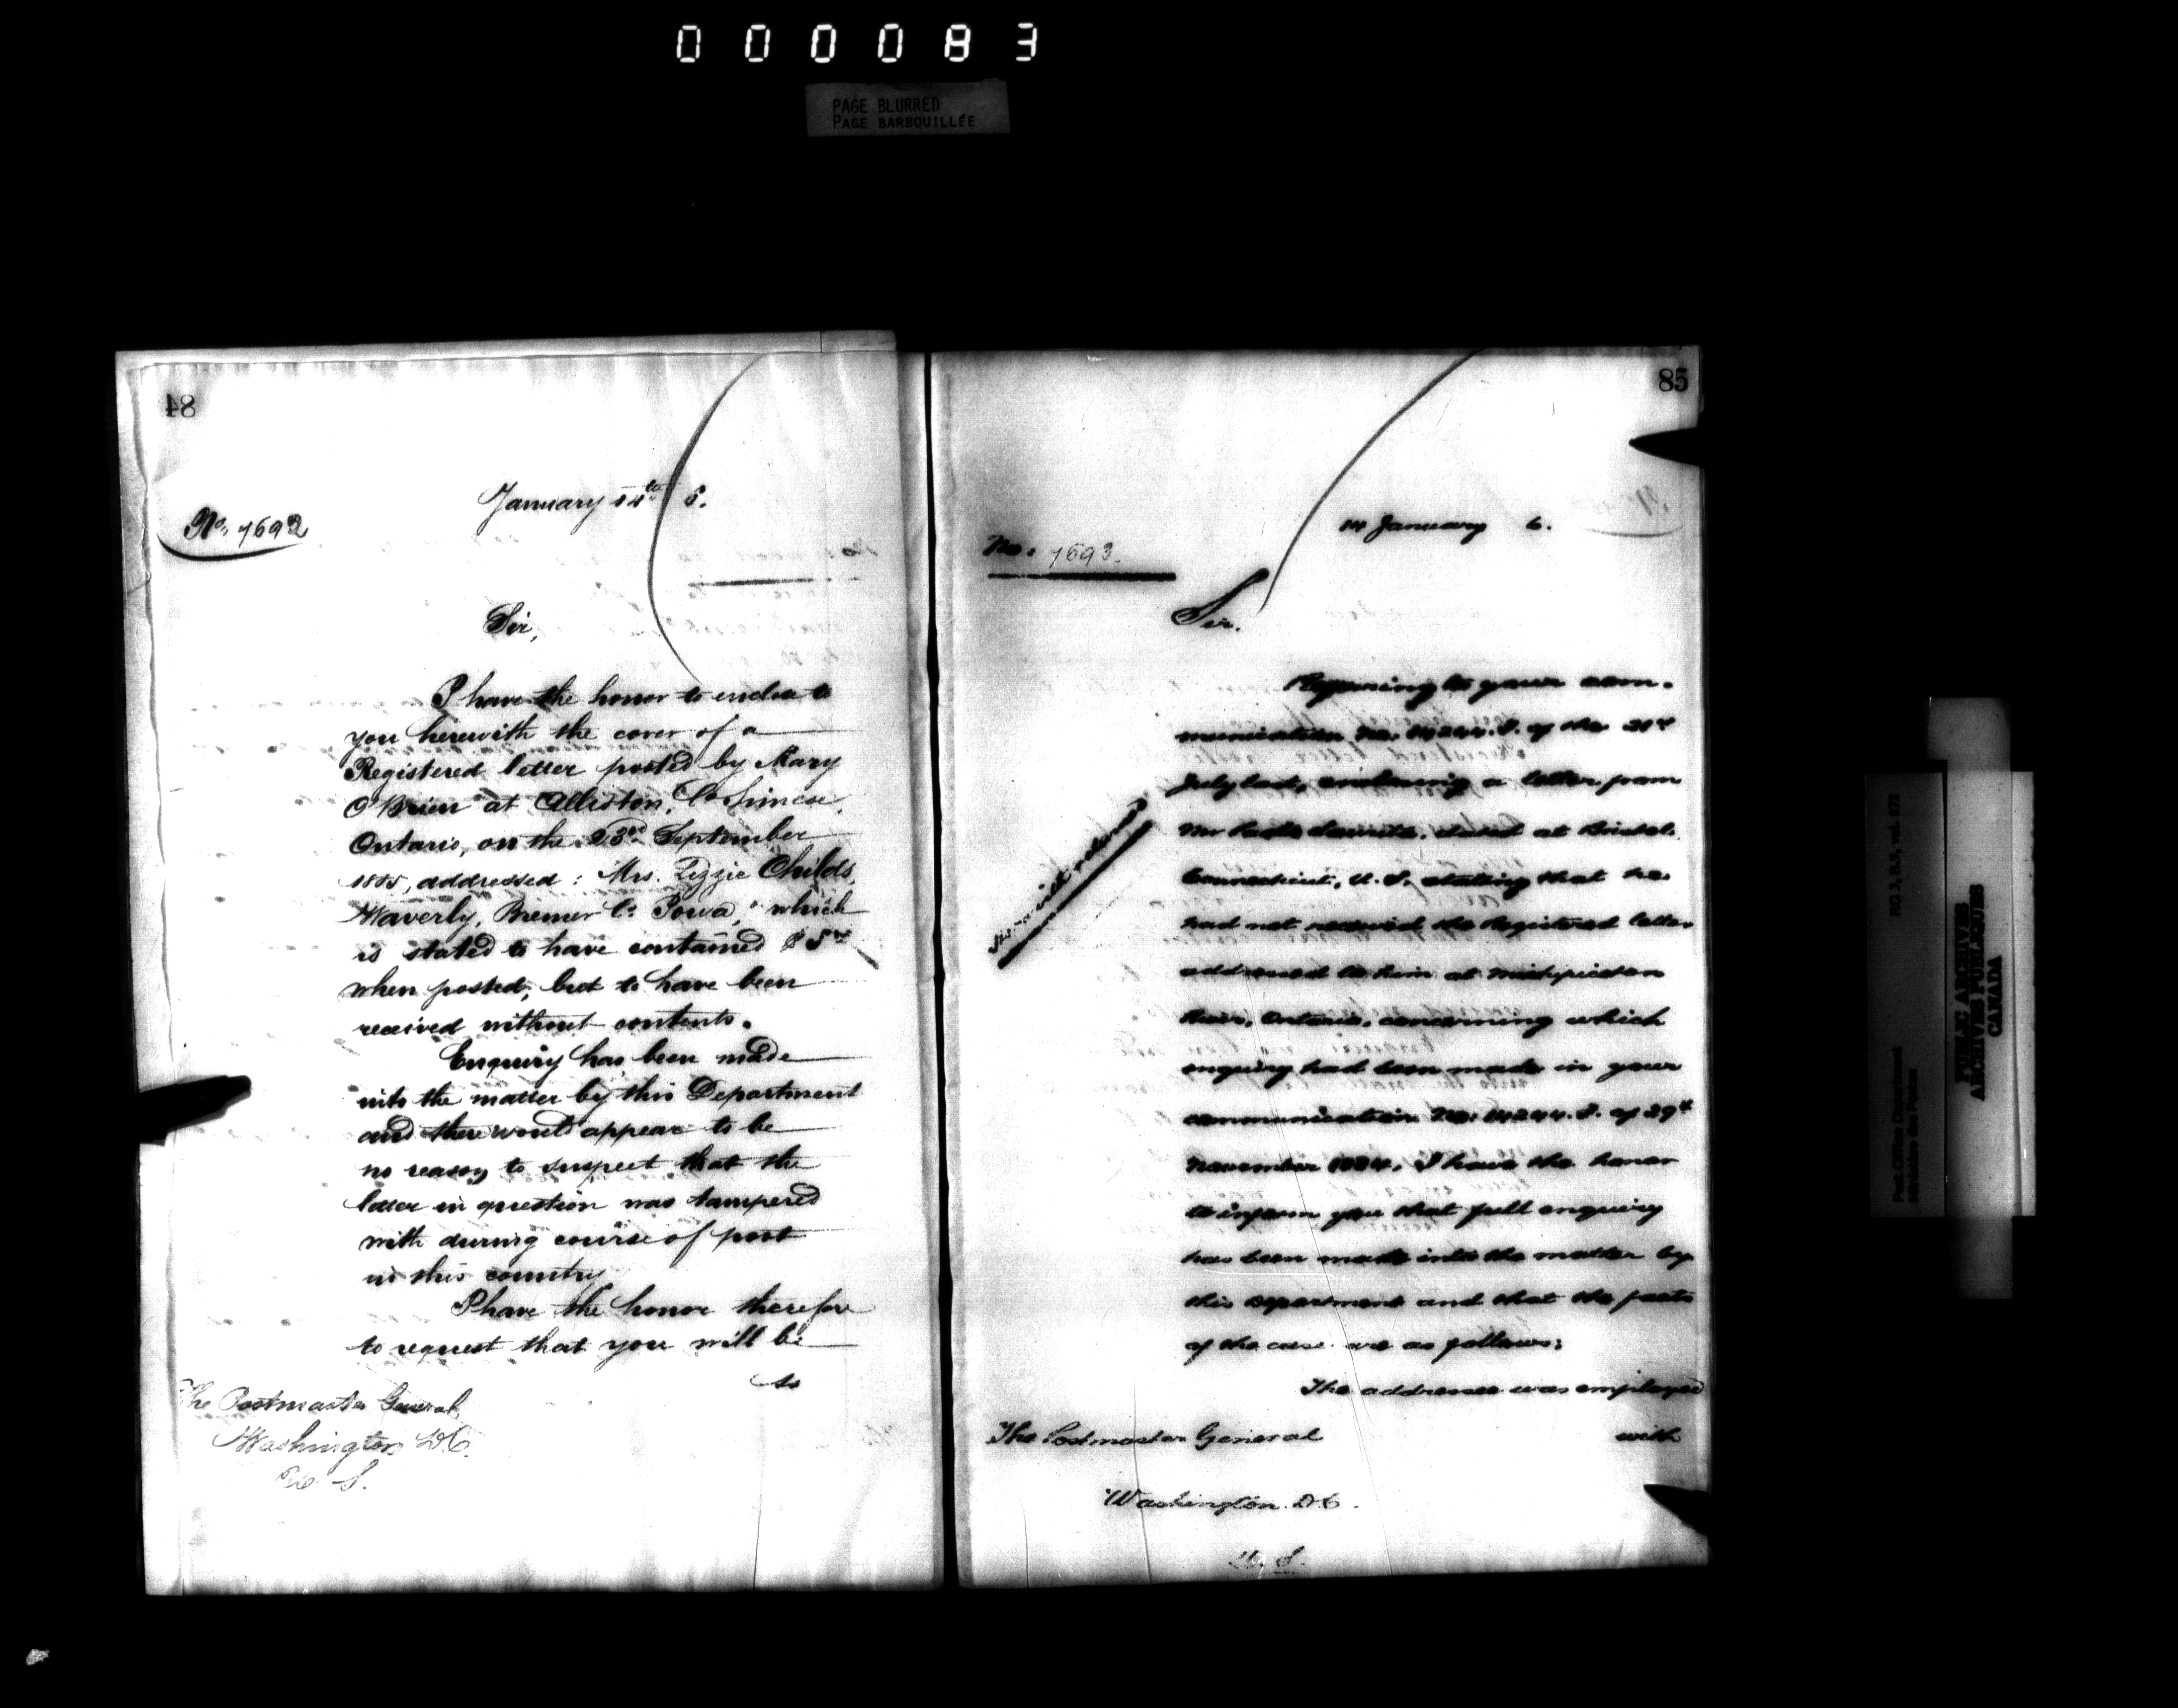 000083
PAGE BLURRED
PAGE BARBOUILLÉE
84
January 14th 6.
No. 7692
Sir,
I have the honor to enclose to
you herewith the cover of a
Registered letter posted by Mary
O'Brien at Alliston, Co Simcoe,
Ontario, on the 23rd September
1885, addressed: Mrs. Lizzie Childs,
Waverly, Bremer Co. Iowa," which
is stated to have contained $5
when posted, but to have been
received without contents.
Enquiry has been made
into the matter by this Department
and there would appear to be
no reason to suspect that the
letter in question was tampered
with during course of post
in this country
I have the honor therefore
to request that you will be
so
The Postmaster General,
Washington D.C.
U. S.
85
14 January 6.
No: 7693.
Sir.
Referring to your com-
munication No. of the 21st
July last, enclosing a letter from
Mr dated at Bristol.
Connecticut, U.S. stating that he
had not received the Registered letter
addressed to him at Michipicoten
River, Ontario, concerning which
enquiry had been made in your
communication No. of 29th
November 1884, I have the honor
to inform you that full enquiry
has been made into the matter by
this department and that the facts
of the case are as follows:
The addressee was employed
with
The Postmaster General
Washington. D.C.
U. S.
Post Office Department
Ministère des Postes
RG 3, B.5, vol. 872
PUBLIC ARCHIVES
ARCHIVES PUBLIQUES
CANADA